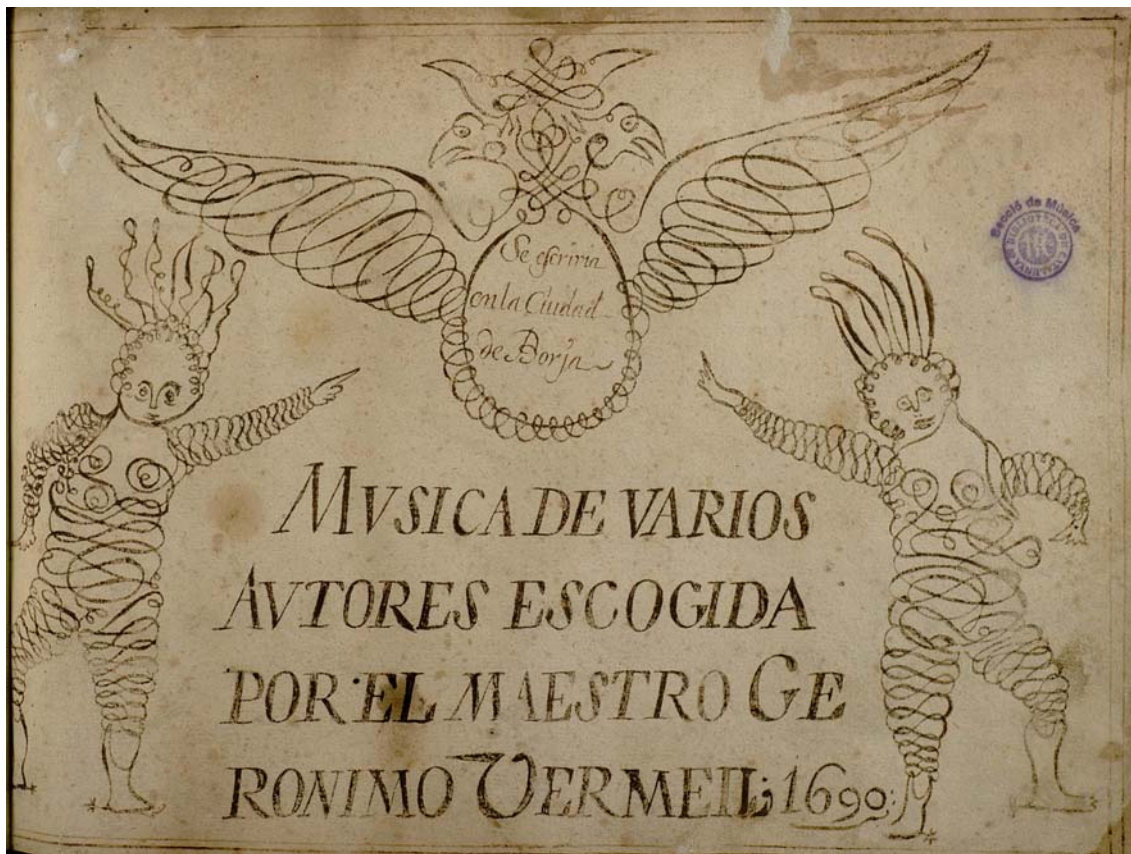 Se escriviria
en la Ciudad
de Borja
Secció de Música
MVSICA DE VARIOS
AVTORES ESCOGIDA
POR EL MAESTRO GE
RONIMO VERMELL; 1690: